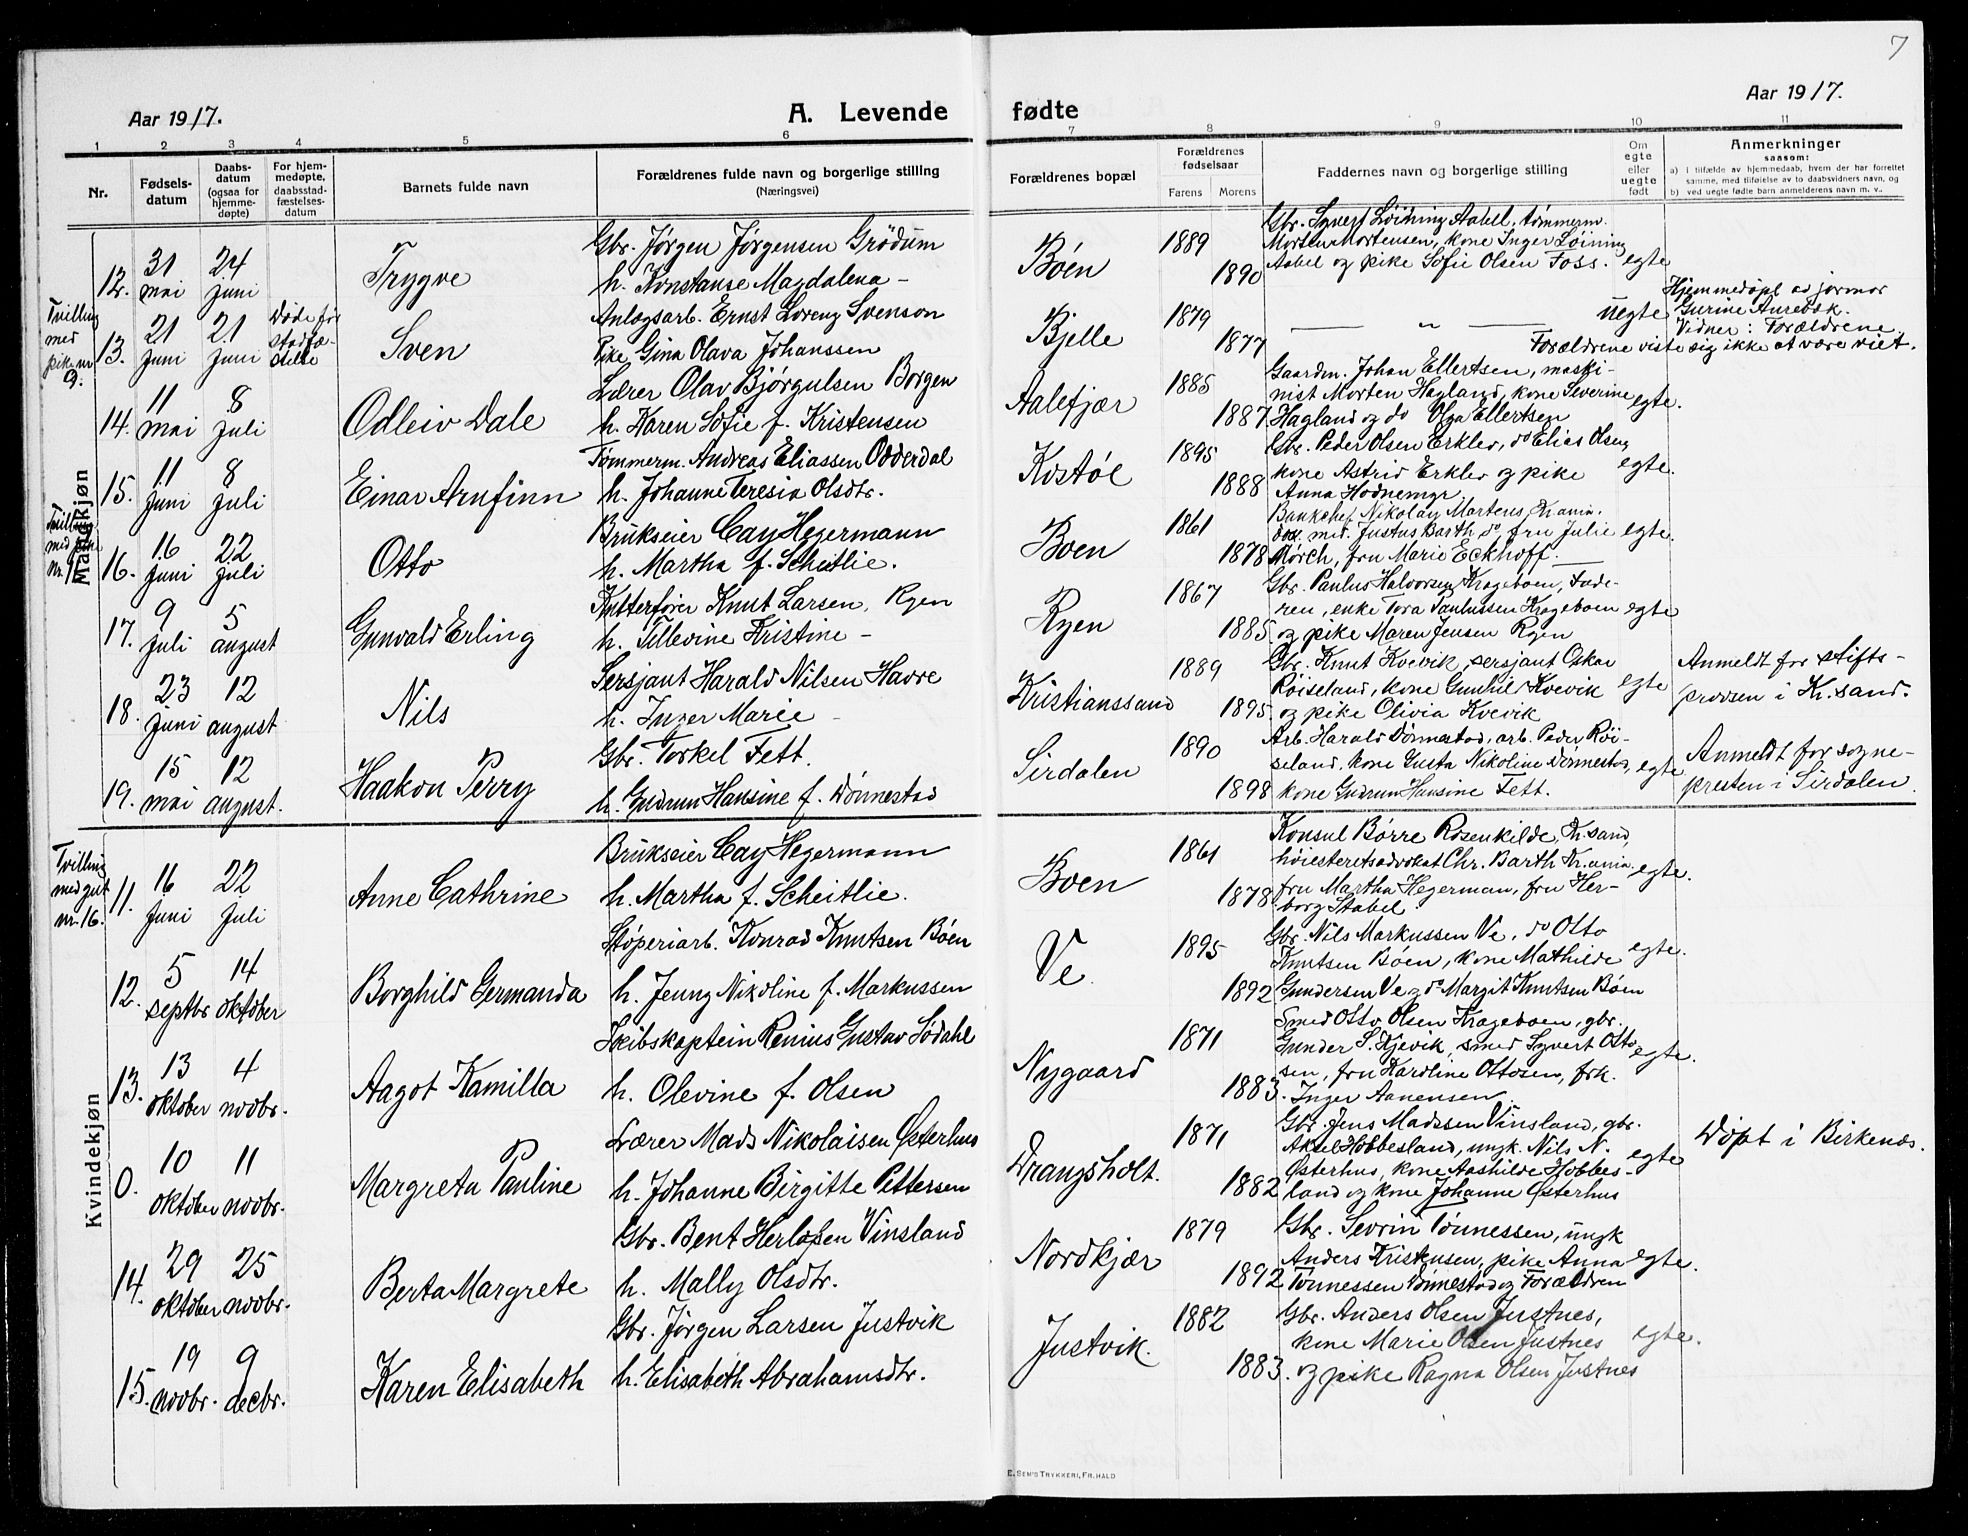 7
Aar 1917.
A. Levende
fødte
Aar 1917.
1 2 3 4 5 6 7 8 9 10 11
Nr.
Fødsels-
datum
Daabs-
datum
(ogsaa for
hjemme-
døpte)
For hjem-
medøpte,
daabsstad-
fæstelses-
datum
Barnets fulde navn
Forældrenes fulde navn og borgerlige stilling
(Næringsvei)
Forældrenes bopæl
Forældrenes
fødselsaar
Farens Morens
Faddernes navn og borgerlige stilling
Om
egte
eller
uegte
født
Anmerkninger
saasom:
a) i tilfælde av hjemmedaab, hvem der har forrettet
samme, med tilføielse av to daabsvidners navn, og
b) ved uegte fødte barn anmelderens navn m. v.
Mandkjøn
12. 31 mai 24 juni
Trygve
Gbr. Jørgen Jørgensen Grødum
h. Konstanse Magdalena –
Boen
1889
1890
Gbr. Syvert Løining Aabel, tømmerm.
Morten Mortensen, kone Inger Løining
Aabel og pike Sofie Olsen Foss.
egte
Tvilling
med
pike nr
9.
13. 21 juni 21 juni
Døde før
stadfæ-
stelse
Sven
Anlægsarb. Ernst Lorenz Svenson
Pike Gina Olava Johanssen
Bjelle
1879
1877
— " —
uegte
Hjemmedøpt ad jormor
Gurine Aurebæk.
Vidner: Forældrene.
Forældrene viste sig ikke at være viet.
14. 11 mai 8 juli
Odleiv Dale
Lærer Olav Bjørgulsen Borgen
h. Karen Sofie f. Kristensen
Aalefjær
1885
1887
Gaardm. Johan Ellertsen, maski-
nist Morten Hagland, kone Severine
Hagland og do Olga Ellertsen
egte.
15. 11 juni 8 juli
Einar Arnfinn
Tømmerm. Andreas Eliassen Odderdal
h. Johanne Teresia Olsdtr.
Kostøl
1895
1888
Gbr. Peder Olsen Erklev, do Elies Olsen,
kone Astrid Erklev og pike
Anna Hodnemyr.
egte.
Tvilling
med pike
nr. 11
16. 16 juni 22 juli
Otto
Brukseier Cay Hegermann
h. Martha f. Scheitlie.
Boen
1861
1878
Bankchef Nikolay Martens, Kr.ania.
dr. med. Justus Barth do, fru Julie
Mørch, fru Marie Eckhoff. —
egte.
17. 9 juli 5 august
Gunvald Erling
Kutterfører Knut Larsen, Ryen
h. Tellevine Kristine –
Ryen
1867
1885
Gbr. Paulus Halvorsen Krageboen, Fade-
ren, enke Tora Paulussen Krageboen
og pike Maren Jensen Ryen
egte
18. 23 juni 12 august
Nils
Sersjant Harald Nilsen Havre
h. Inger Marie –
Kristianssand
1889
1895
Gbr. Knut Kvevik, sersjant Oskar
Røiseland, kone Gunhild Kvevik
og pike Olivia Kvevik
egte
Anmeldt for stifts-
provsen i Kr.sand.
19. 15 mai 12 august.
Haakon Perry
Gbr. Torkel Fett.
h. Gudrun Hansine f. Dønnestad
Sirdalen
1890
1898
Arb. Harald Dønnestad, arb. Peder Røi-
seland, kone Gusta Nikoline Dønnestad,
kone Gudrun Hansine Fett.
egte
Anmeldt for sogne-
presten i Sirdalen.
Kvindekjøn
Tvilling
med gut
nr. 16.
11. 16 juni 22 juli
Anne Cathrine
Brukseier Cay Hegermann
h. Martha f. Scheitlie.
Boen
1861
1878
Konsul Børre Rosenkilde, Kr.sand,
høiesteretsadvokat Chr. Barth Kr.ania.
fru Martha Hegerman, fru Her-
borg Stabel.
egte.
12. 5 septbr 14 oktober
Borghild Germanda
Støperiarb. Konrad Knutsen Bøen
h. Jenny Nikoline f. Markussen
Ve.
1895
1892
Gbr. Nils Markussen Ve, do Otto
Knutsen Bøen, kone Mathilde
Gundersen Ve og do Margit Knutsen Bøen
egte.
13. 13 oktober 4 novbr.
Aagot Kamilla
Skibskaptein Renius Gustav Sødahl
h. Olevine f. Olsen
Nygaard
1871
1883.
Smed Otto Olsen Krageboen, gbr.
Gunder S. Kjevik, smed Syvert Otto-
sen, fru Karoline Ottosen, frk.
Inger Aanensen
egte.
0. 10 oktober 11 novbr.
Margreta Pauline
Lærer Mads Nikolaisen Østerhus
h. Johanne Birgitte Pettersen
Drangsholt.
1871
1882
Gbr. Jens Madssen Vinsland, gbr.
Aksel Hobbesland, ungk. Nils N.
Østerhus, kone Aashilde Hobbes-
land og kone Johanne Østerhus
egte
Døpt i Birkenæs.
14. 29 oktober 25 novbr.
Berta Margrete
Gbr. Bent Herlofsen Vinsland
h. Mally Olsdtr.
Nordkjær
1879
1892
Gbr. Sevrin Tønnessen, ungk
Anders Kristensen, pike Anna
Tønnessen Dønnestad og Forældren
egte.
15. 19 novbr. 9 decbr.
Karen Elisabeth
Gbr. Jørgen Larsen Justvik
h. Elisabeth Abrahamsdtr.
Justvik.
1882
1883.
Gbr. Anders Olsen Justnes,
kone Marie Olsen Justnes
og pike Ragna Olsen Justnes
egte.
E. SEM'S TRYKKERI, FR.HALD